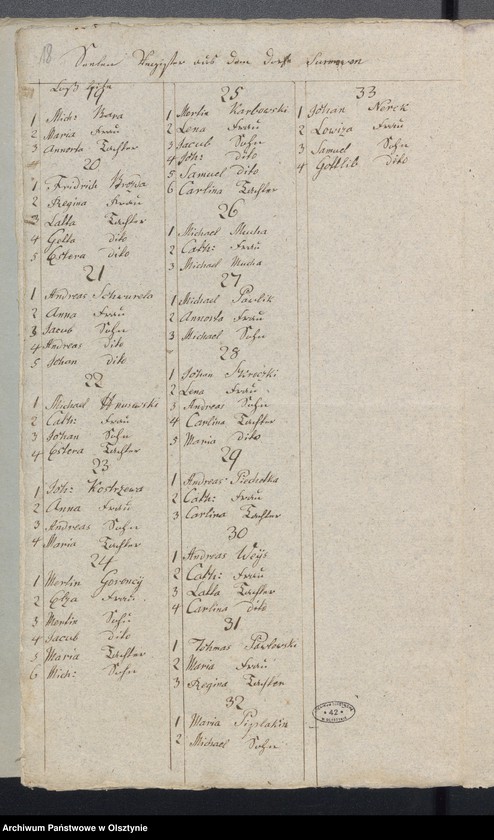 18
Seelen Register aus dem Dorfe
19
1 Mich: Bara
2 Maria Frau
3 Annorta Tochter
20
1 Fridrich Brozda
2 Regina Frau
3 Latta Tochter
4 Golta dito
5 Estera dito
21
1 Andreas
2 Anna Frau
3 Jacub Sohn
4 Andreas dito
5 Johan dito
22
1 Michael
2 Cath: Frau
3 Johan Sohn
4 Estera Tochter
23
1 Joh: Kostrzewa
2 Anna Frau
3 Andreas Sohn
4 Maria Tochter
24
1 Mertin Goroncy
2 Elza Frau
3 Mertin Sohn
4 Jacub dito
5 Maria Tochter
6 Mich: Sohn
25
1 Mertin Karbowski
2 Lena Frau
3 Jacub Sohn
4 Joh: dito
5 Samuel dito
6 Carlina Tochter
26
1 Michael Mucha
2 Cath: Frau
3 Michael Mucha
27
1 Michael Pawlik
2 Annorta Frau
3 Michael Sohn
28
1 Johan
2 Lena Frau
3 Andreas Sohn
4 Carlina Tochter
5 Maria dito
29
1 Andreas Piechotka
2 Cath: Frau
3 Carlina Tochter
30
1 Andreas Weys
2 Cath: Frau
3 Latta Tochter
4 Carlina dito
31
1 Tohmas Pawlowski
2 Maria Frau
3 Regina Tochter
32
1 Maria
2 Michael Sohn
33
1 Johan Norek
2 Lowiza Frau
3 Samuel Sohn
4 Gottlib dito
42
Archiwum Państwowe w Olsztynie